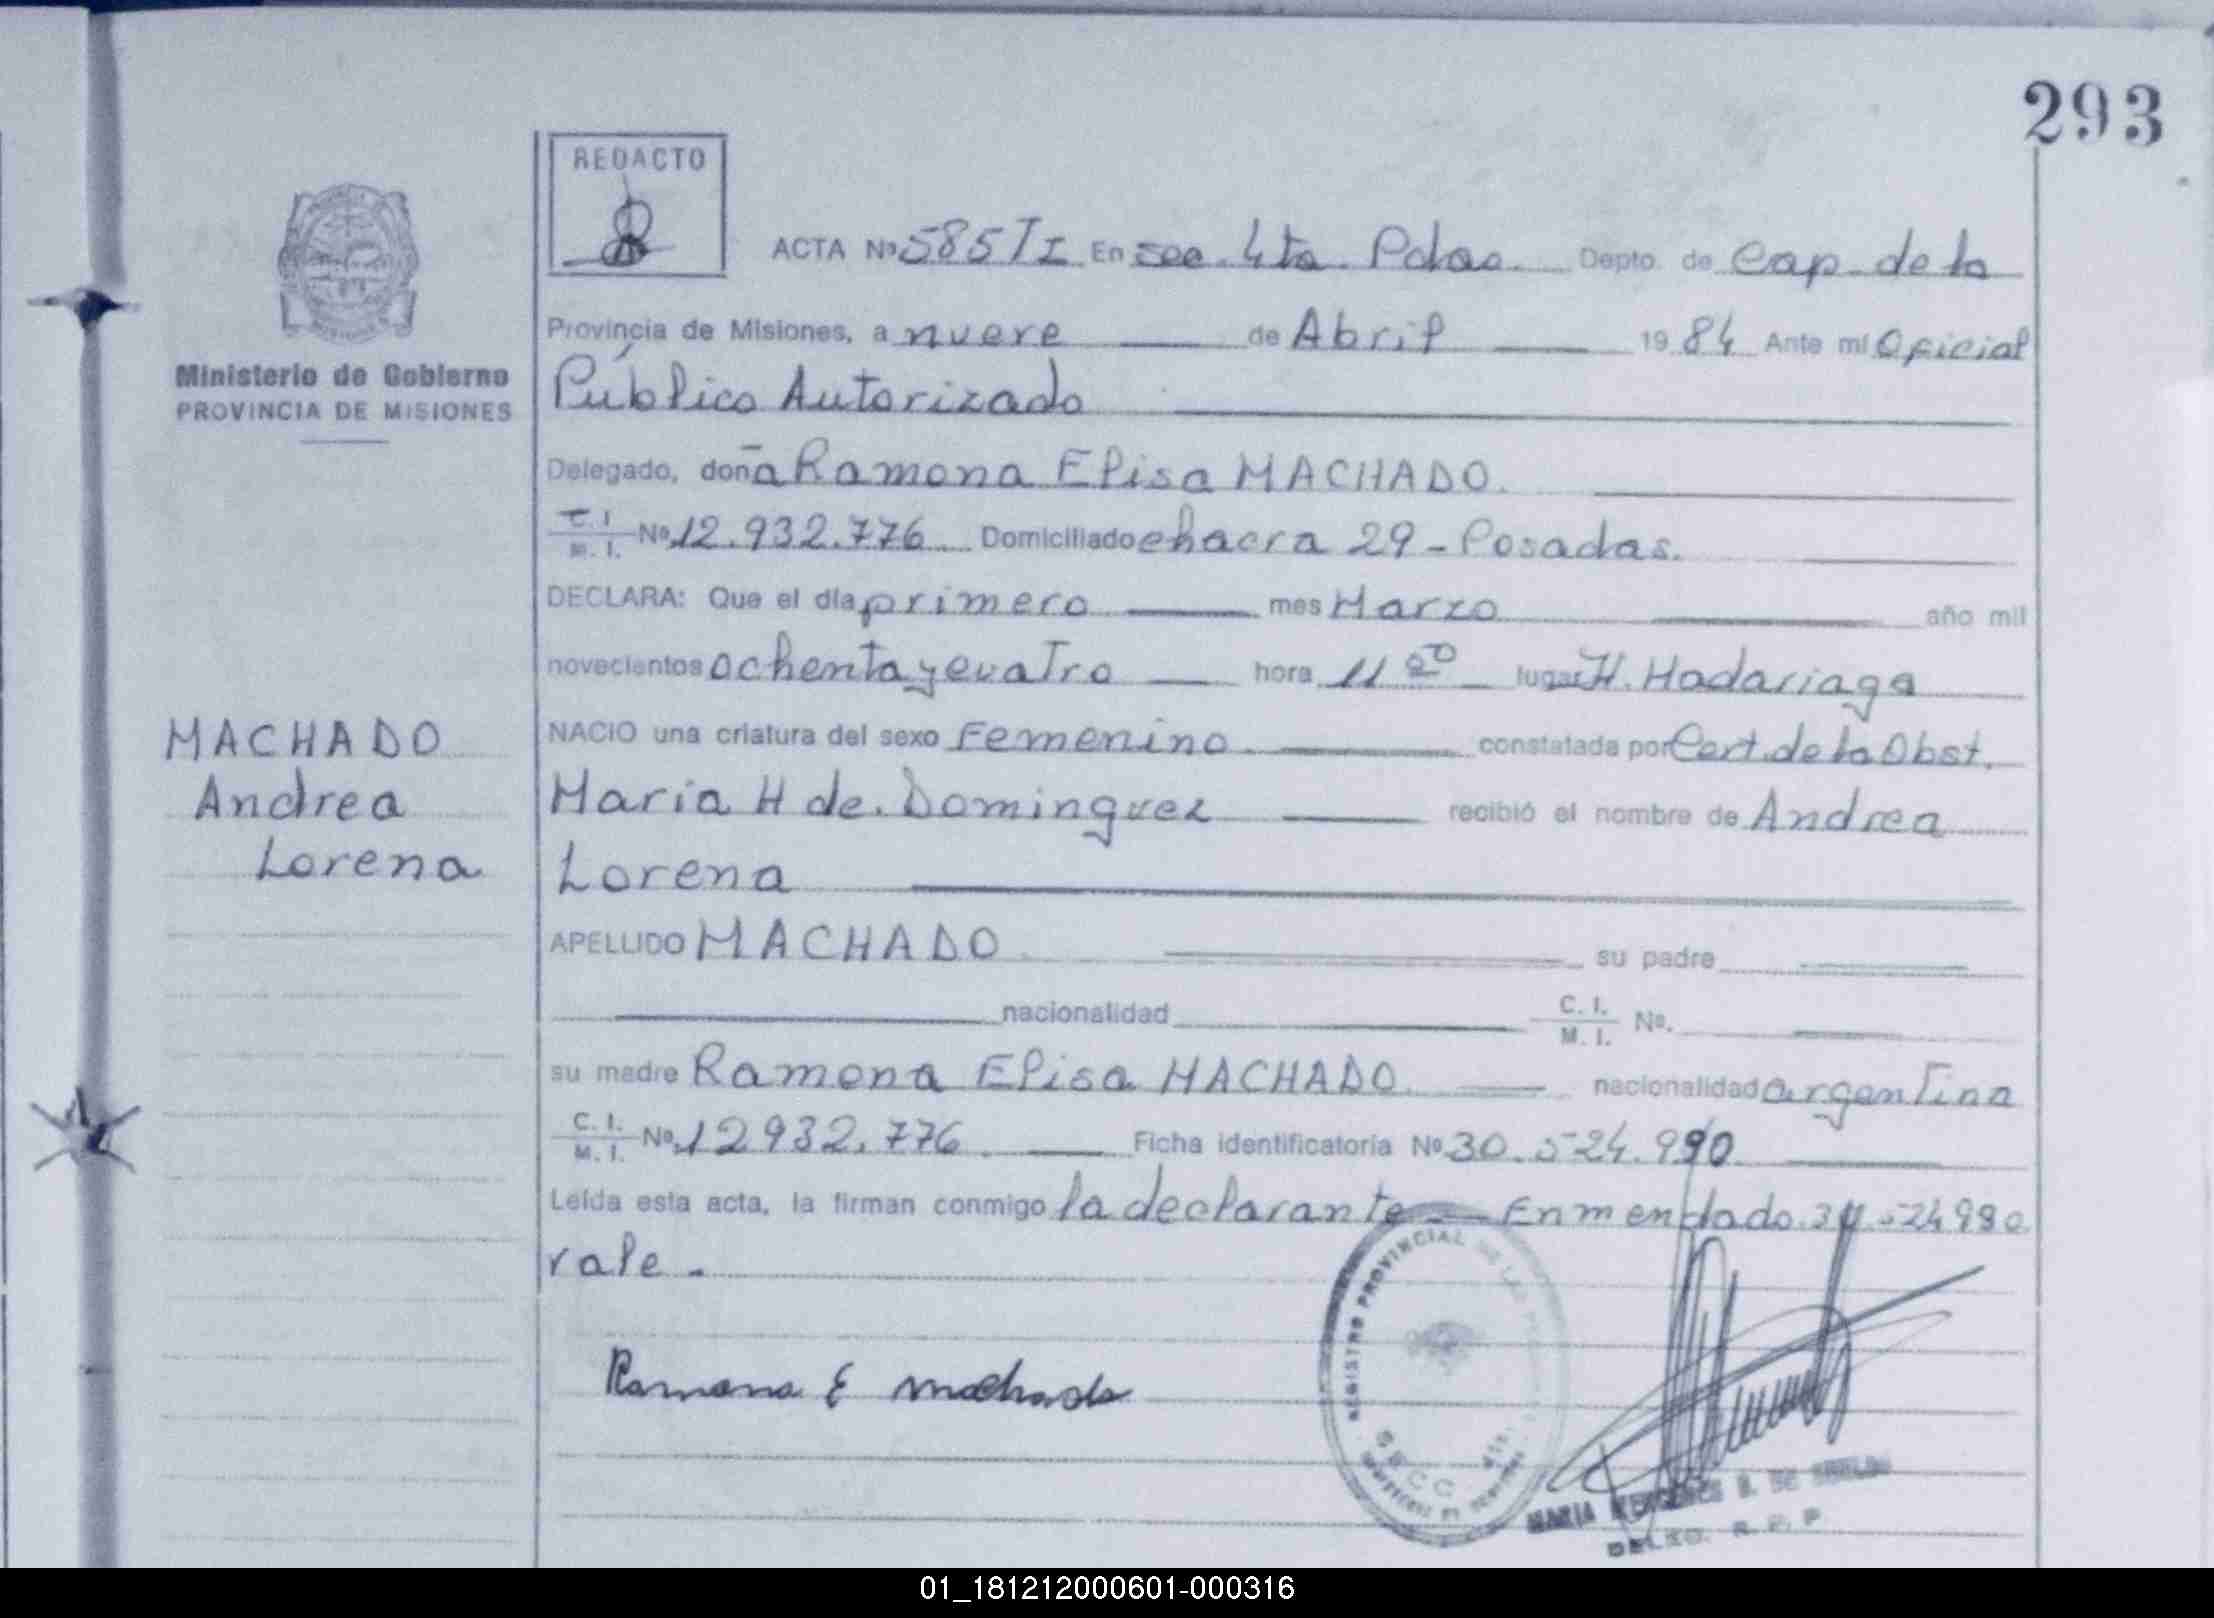 293
REDACTO
ACTA Nº 585 TI En sec. 4ta. Pdas. Depto. de Cap. de la
Provincia de Misiones, a nueve de Abril 19 84 Ante mi Oficial
Ministerio de Gobierno
PROVINCIA DE MISIONES
Público Autorizado
Delegado, doña Ramona Elisa MACHADO.
C. I. M. I. Nº 12.932.776 Domiciliado chacra 29 - Posadas.
DECLARA: Que el día primero mes Marzo año mil
novecientos ochenta y cuatro hora 11 20 lugar H. Madariaga
MACHADO
Andrea
Lorena
NACIO una criatura del sexo Femenino constatada por Cert. de la Obst.
Maria H de. Dominguez recibió el nombre de Andrea
Lorena
APELLIDO MACHADO su padre
nacionalidad C. I. M. I. Nº.
su madre Ramona Elisa MACHADO nacionalidad argentina
C. I. M. I. Nº 12932.776 Ficha identificatoria Nº 30.524.990
Leída esta acta, la firman conmigo la declarante. Enmendado. 30.524990
vale.
Ramona E machado
REGISTRO PROVINCIAL DE LAS
MARIA DE
DELEG. R. P. P.
01_181212000601-000316